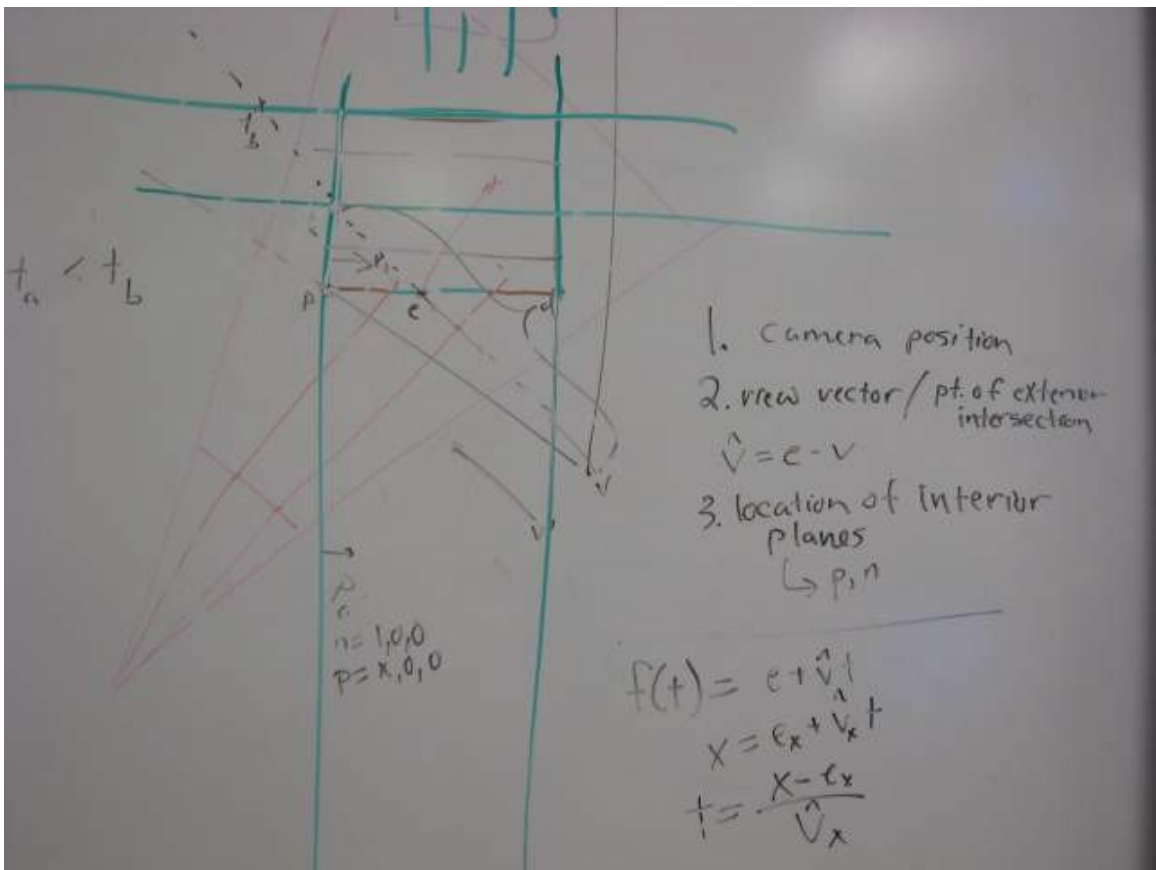 t_b
t_a < t_b
P
e
d
v
v
n=1,0,0
p=x,0,0
1. camera position
2. view vector/pt. of exterior
intersection
v̂ = e - v
3. location of interior
planes
↳ p, n
f(t) = e + v̂t
x = e_x + v̂_x t
t = x - e_x / v̂_x